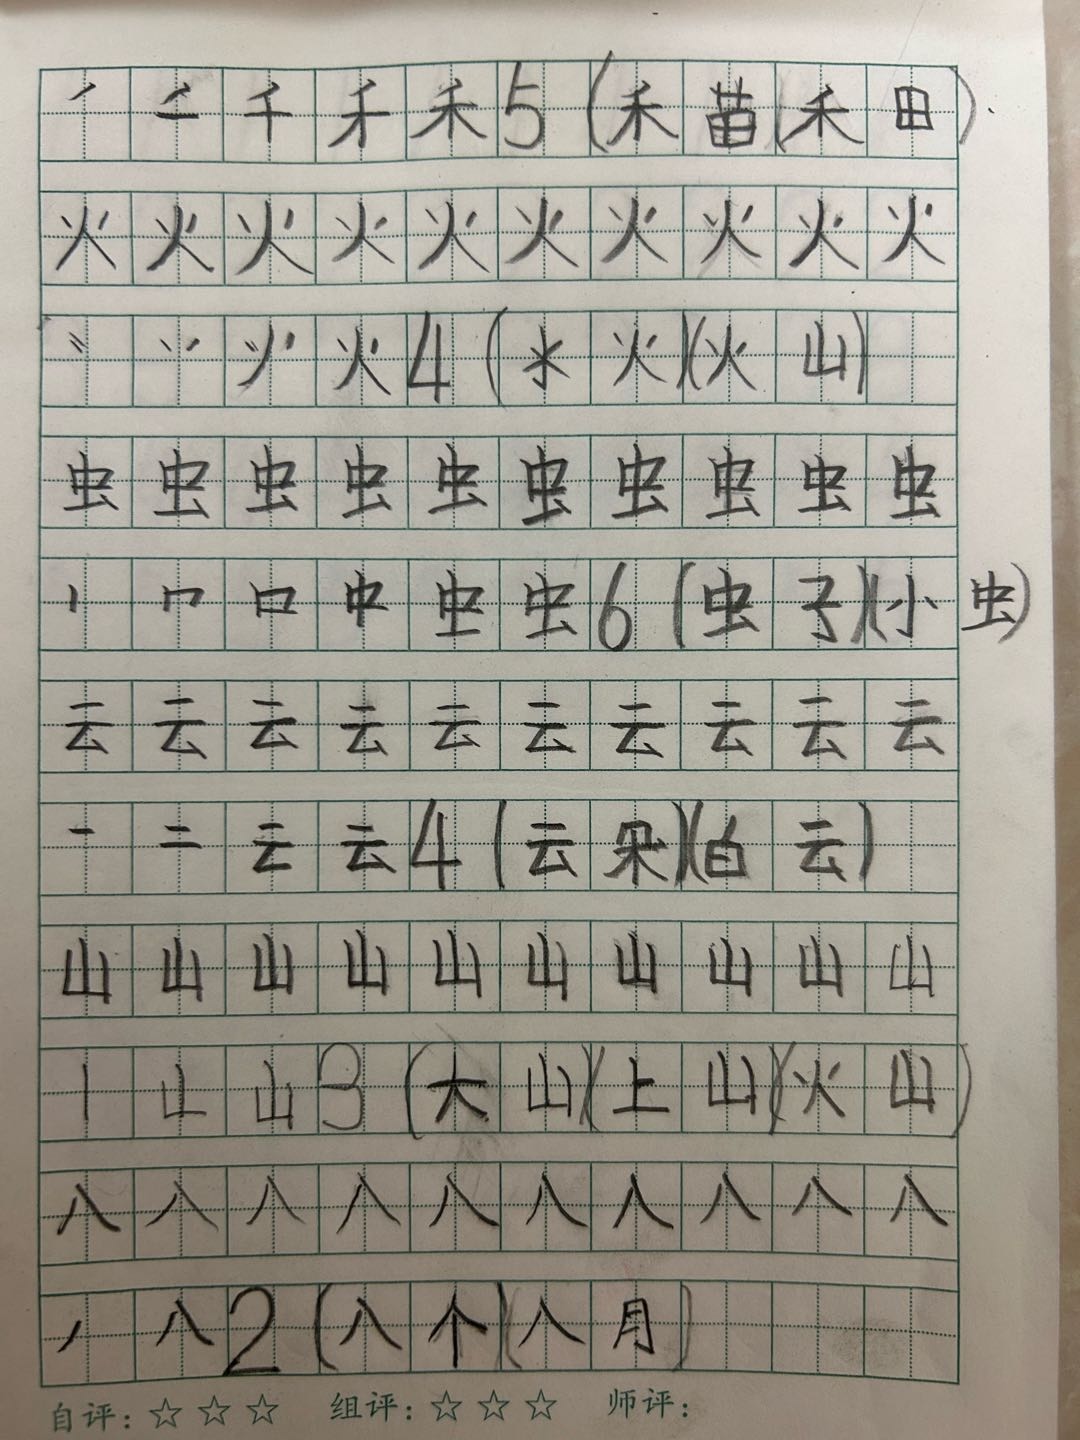 丿 二 千 禾 禾 5 (禾苗(禾田)
火 火 火 火 火 火 火 火 火 火
丷 火 4 (水火)(火山)
虫 虫 虫 虫 虫 虫 虫 虫 虫 虫
丨 口 中 虫 虫 6 (虫子)(小虫)
云 云 云 云 云 云 云 云 云 云
一 二 云 云 4 (云朵)(白云)
山 山 山 山 山 山 山 山 山 山
丨 山 3 (大山)(上山)(火山)
八 八 八 八 八 八 八 八 八 八
丿 八 2 (八个)(八月)
自评：☆ ☆ ☆ 组评：☆ ☆ ☆ 师评：